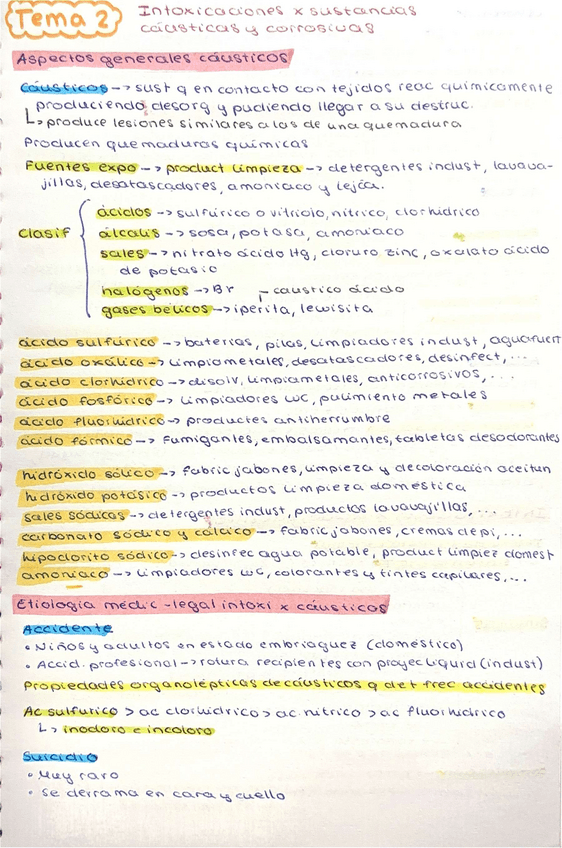 Tema 2
Intoxicaciones x sustancias
cáusticas y corrosivas
Aspectos generales cáusticos
Cáusticos -> sust q en contacto con tejidos reac químicamente
produciendo desorg y pudiendo llegar a su destruc.
L> produce lesiones similares a las de una quemadura
Producen quemaduras químicas
Fuentes expo -> product limpieza -> detergentes indust, lavava-
jillas, desatascadores, amoniaco y lejía.
Clasif
ácidos -> sulfúrico o vitriolo, nítrico, clorhídrico
álcalis -> sosa, potasa, amoniaco
sales -> nitrato ácido Hg, cloruro zinc, oxalato ácido
de potasio
halógenos -> Br
caustico ácido
gases bélicos -> iperita, lewisita
ácido sulfúrico -> baterías, pilas, limpiadores indust, aguafuert
ácido oxálico -> limpiametales, desatascadores, desinfect, ...
ácido clorhídrico -> disolv, limpiametales, anticorrosivos, ...
ácido fosfórico -> limpiadores WC, pulimiento metales
ácido fluorhídrico -> productes antiherrumbre
ácido fórmico -> fumigantes, embalsamantes, tabletas desodorantes
hidróxido sólico -> fabric jabones, limpieza y decoloración aceitun
hidróxido potásico -> productos limpieza doméstica
sales sódicas -> detergentes indust, productos lavavajillas, ...
carbonato sódico y cálcico -> fabric jabones, cremas depi, ...
hipoclorito sódico -> desinfec agua potable, product limpiez domest
amoniaco -> limpiadores WC, colorantes y tintes capilares, ...
Etiología médic-legal intoxi x cáusticos
Accidente
• Niños y adultos en estado embriaguez (doméstico)
• Accid. profesional -> rotura recipientes con proyec líquid (indust)
Propiedades organolépticas de cáusticos q det frec accidentes
Ac sulfurico > ac clorhídrico > ac nítrico > ac fluorhídrico
L> inodoro e incoloro
Suicidio
• Muy raro
• se derrama en cara y cuello